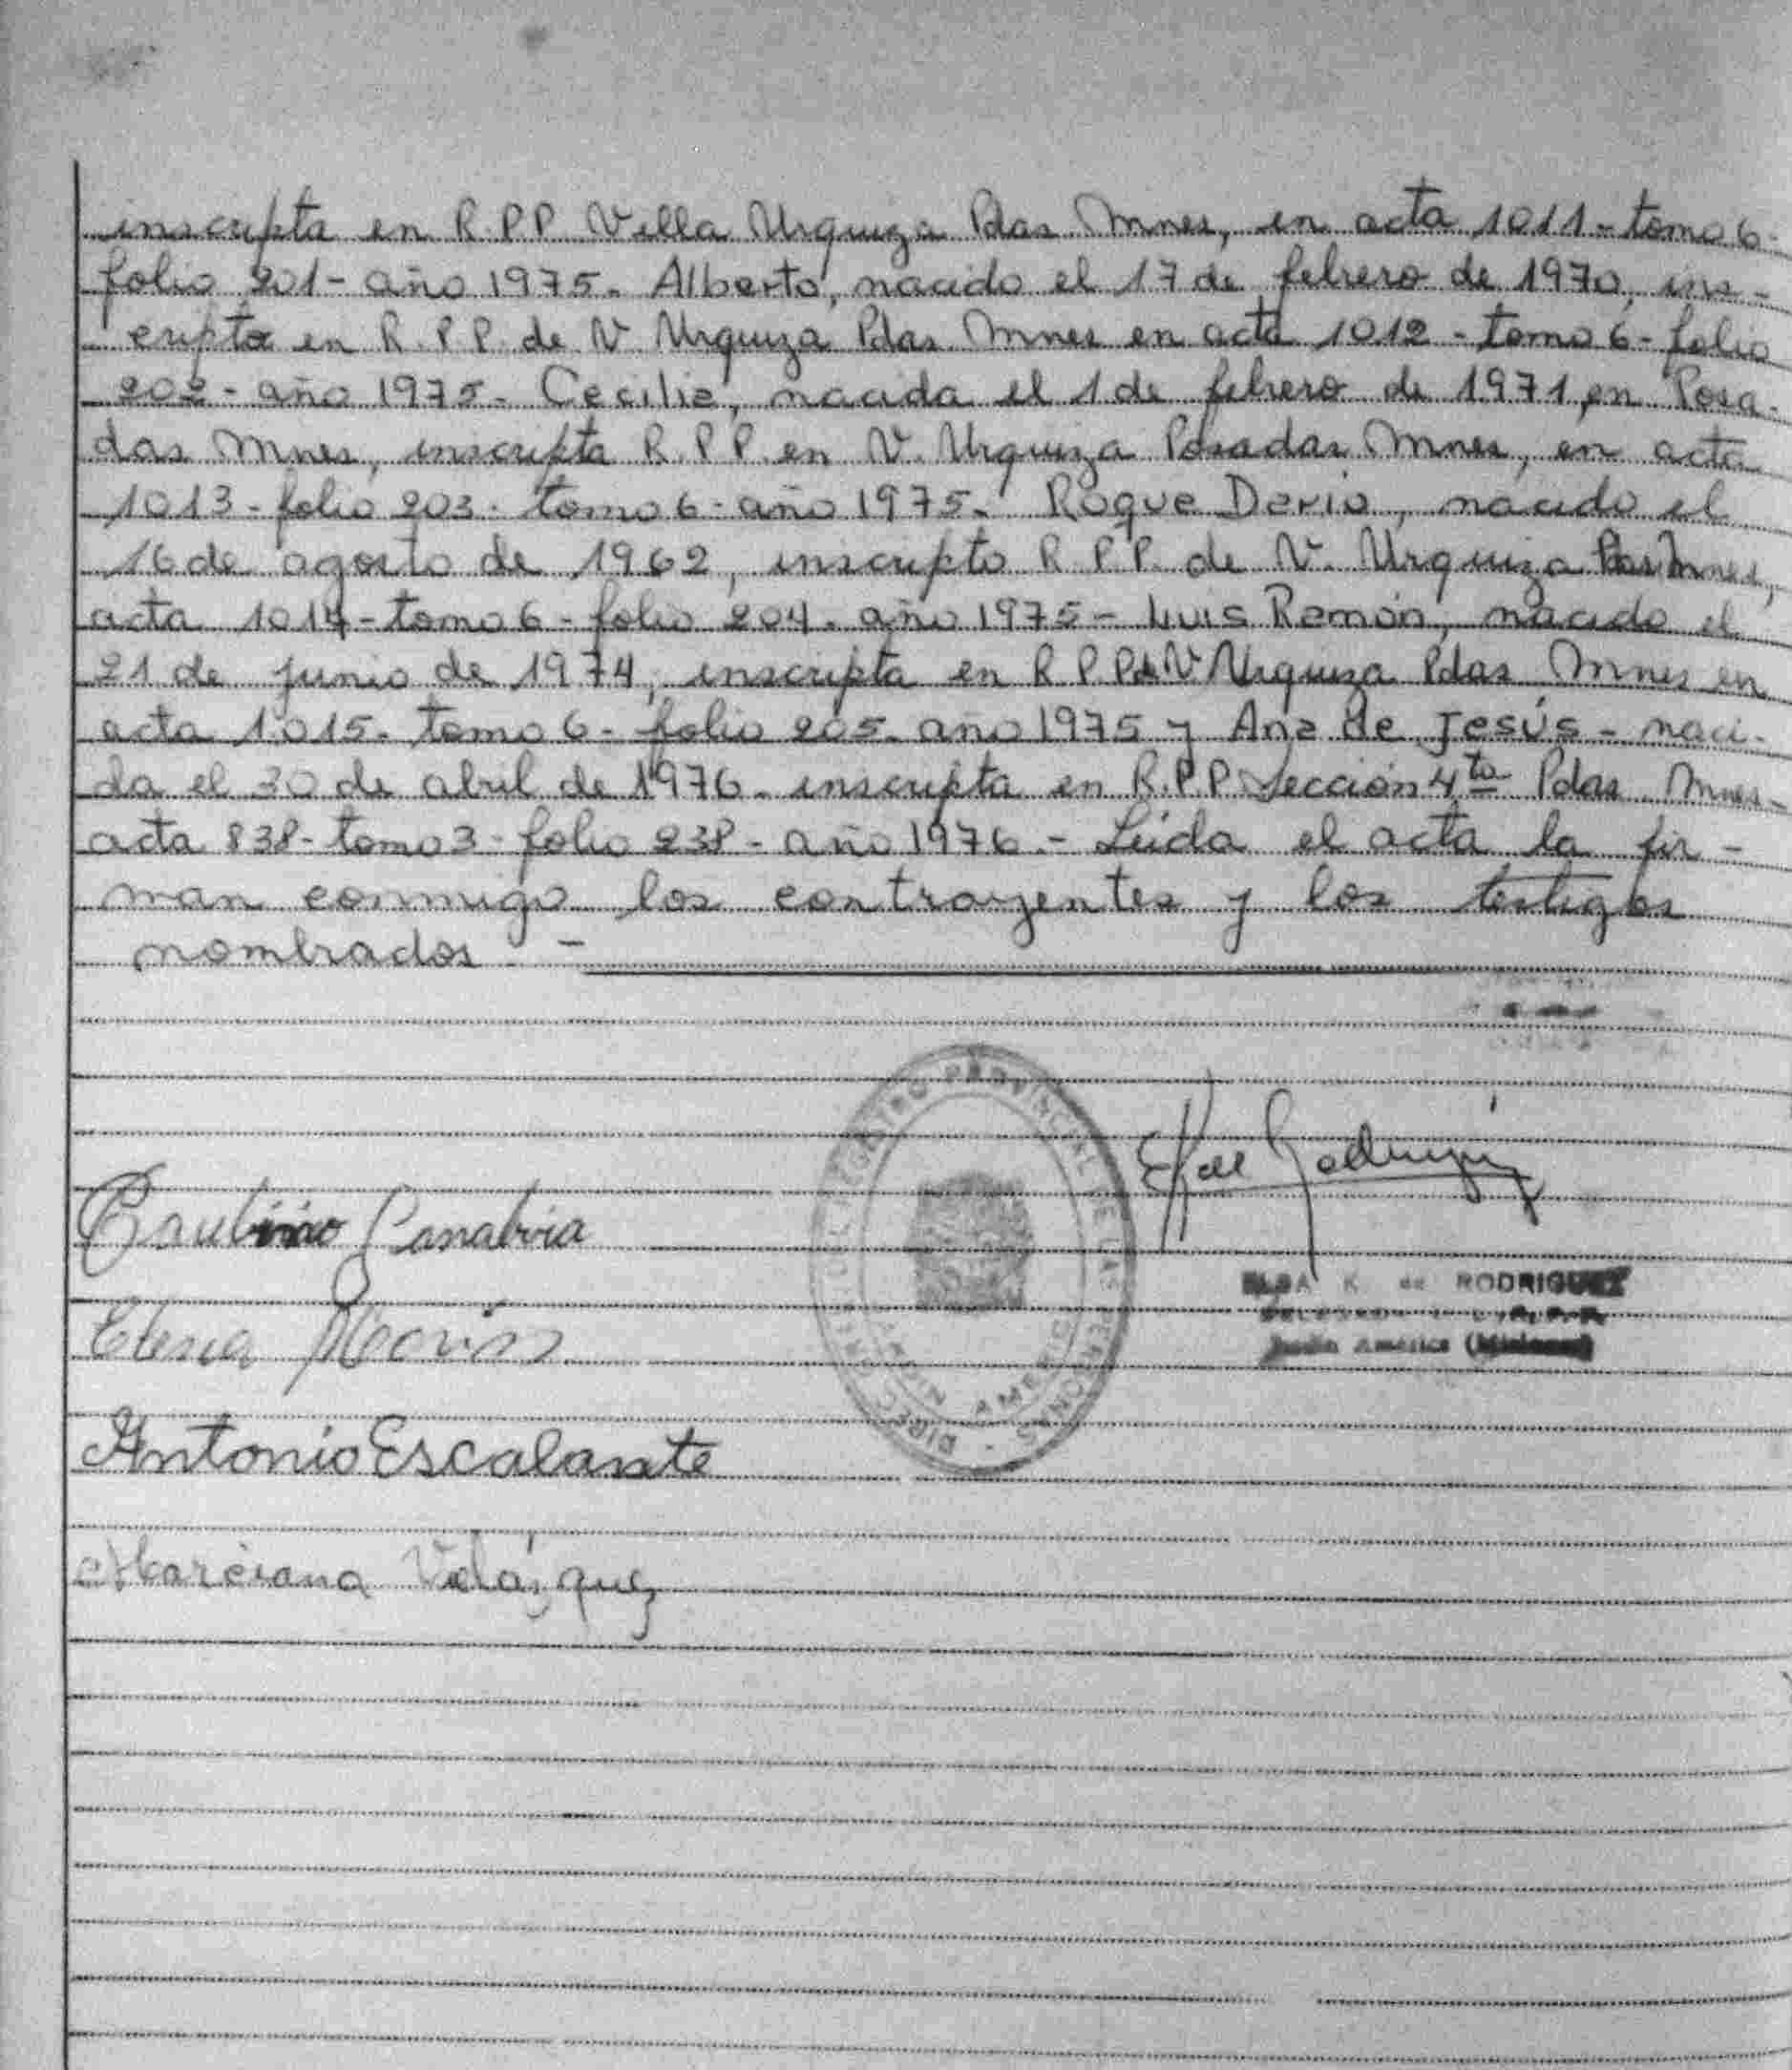 inscripta en R.P.P. Villa Urquiza Pdas Mnes, en acta 1011 - tomo 6 -
folio 201 - año 1975. Alberto, nacido el 17 de febrero de 1970, ins-
cripto en R.P.P. de V Urquiza Pdas. Mnes en acta 1012 - tomo 6 - folio
202 - año 1975. Cecilia, nacida el 1 de febrero de 1971, en Posa-
das Mnes, inscripta R.P.P. en V. Urquiza Posadas Mnes, en acta
1013 - folio 203 - tomo 6 - año 1975. Roque Dario, nacido el
16 de agosto de 1962, inscripto R.P.P. de V. Urquiza Pdas Mnes,
acta 1014 - tomo 6 - folio 204 - año 1975 - Luis Ramón, nacido el
21 de junio de 1974, inscripta en R P P de V Urquiza Pdas Mnes en
acta 1015 - tomo 6 - folio 205 - año 1975 y Ana de Jesús - naci-
da el 30 de abril de 1976 - inscripta en R.P.P. Sección 4ta Pdas. Mnes -
acta 838 - tomo 3 - folio 238 - año 1976. - Leida el acta la fir-
man conmigo los contrayentes y los testigos
nombrados. -
Paulino Sanabria
Elena
Antonio Escalante
Marciana Velázquez
DIREC. GRAL. DEL REGISTRO PROVINCIAL DE LAS PERSONAS
ELSA K. de RODRIGUEZ
Jardín América (Misiones)